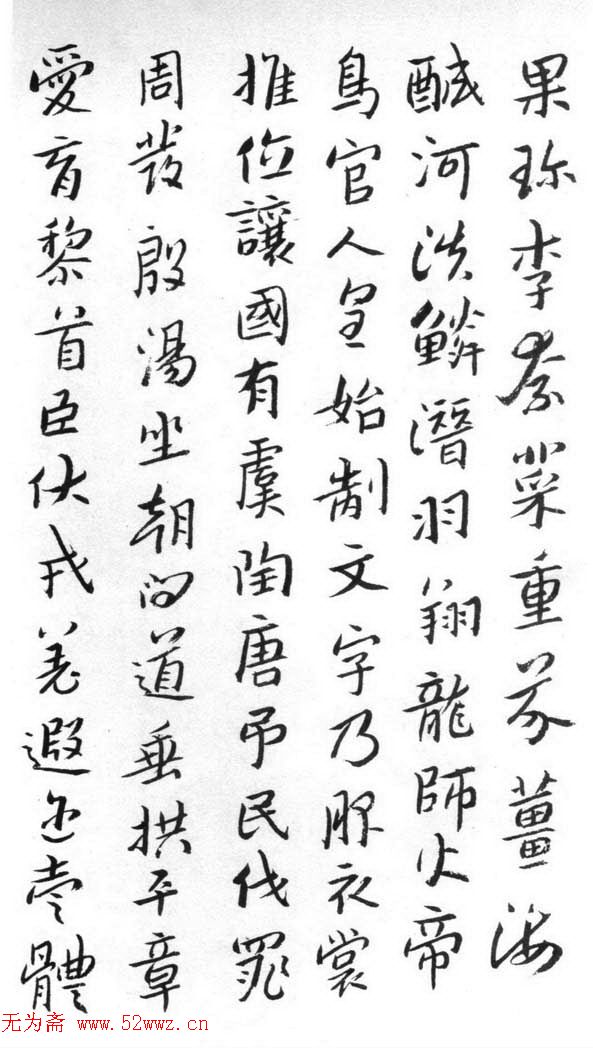 果珍李柰菜重芥薑海
醎河淡鱗潛羽翔龍師火帝
鳥官人皇始制文字乃服衣裳
推位讓國有虞陶唐弔民伐罪
周發殷湯坐朝問道垂拱平章
愛育黎首臣伏戎羌遐迩壹體
无为斋 www.52wwz.cn